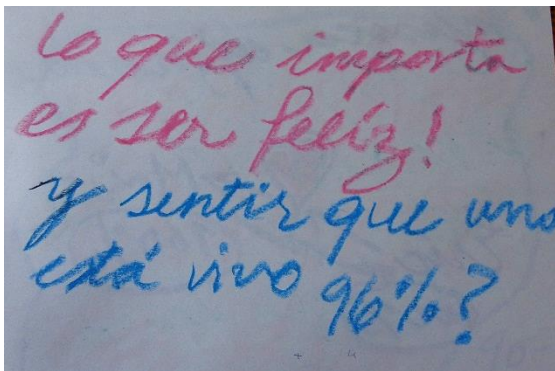 lo que importa
es ser felíz!
y sentir que uno
está vivo 96%?